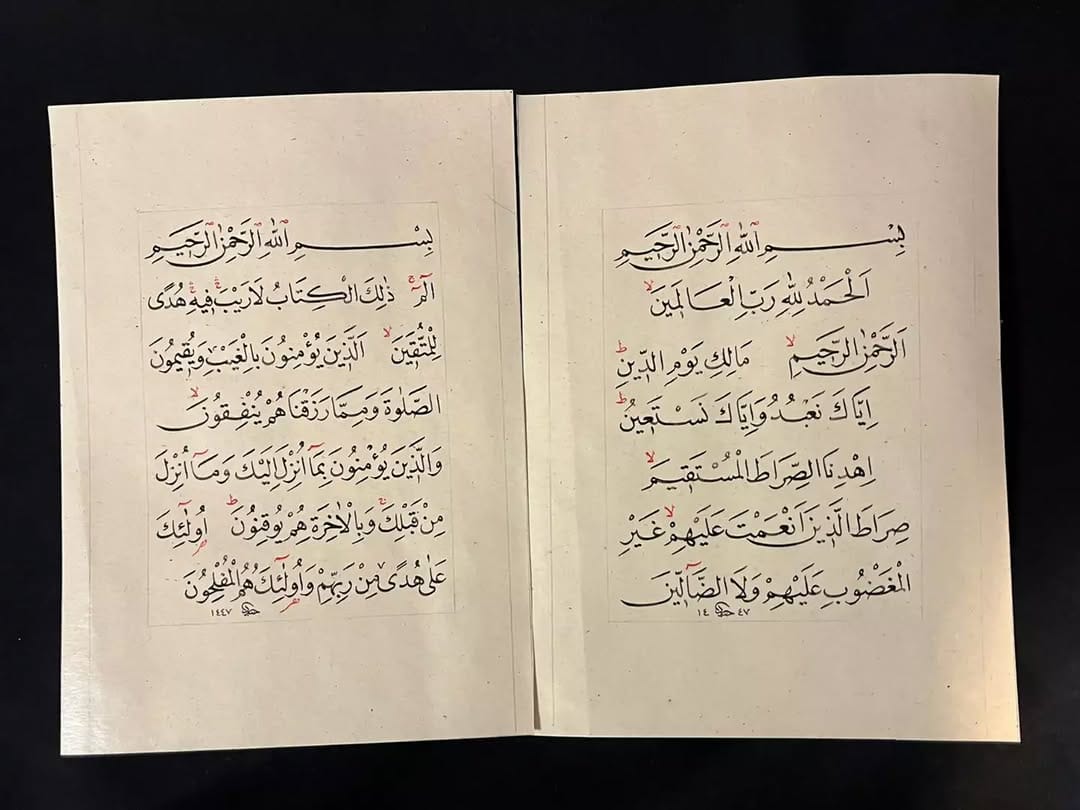 بِسْمِ اللهِ الرَّحْمٰنِ الرَّحِيمِ
اَلْحَمْدُ لِلّٰهِ رَبِّ الْعَالَمِينَ ۙ
اَلرَّحْمٰنِ الرَّحِيمِ ۙ مَالِكِ يَوْمِ الدِّينِ ؕ
اِيَّاكَ نَعْبُدُ وَاِيَّاكَ نَسْتَعِينُ ؕ
اِهْدِنَا الصِّرَاطَ الْمُسْتَقِيمَ ۙ
صِرَاطَ الَّذِينَ اَنْعَمْتَ عَلَيْهِمْ ۙ غَيْرِ
الْمَغْضُوبِ عَلَيْهِمْ وَلَا الضَّٓالِّينَ
١٤ ٤٧
بِسْمِ اللهِ الرَّحْمٰنِ الرَّحِيمِ
الٓمٓ ۚ ذٰلِكَ الْكِتَابُ لَا رَيْبَ ۛ فِيهِ ۛ هُدًى
لِلْمُتَّقِينَ ۙ اَلَّذِينَ يُؤْمِنُونَ بِالْغَيْبِ وَيُقِيمُونَ
الصَّلٰوةَ وَمِمَّا رَزَقْنَاهُمْ يُنْفِقُونَ ۙ
وَالَّذِينَ يُؤْمِنُونَ بِمَٓا اُنْزِلَ اِلَيْكَ وَمَٓا اُنْزِلَ
مِنْ قَبْلِكَ ۚ وَبِالْاٰخِرَةِ هُمْ يُوقِنُونَ ؕ اُو۬لٰٓئِكَ
عَلٰى هُدًى مِنْ رَبِّهِمْ وَاُو۬لٰٓئِكَ هُمُ الْمُفْلِحُونَ
١٤٤٧